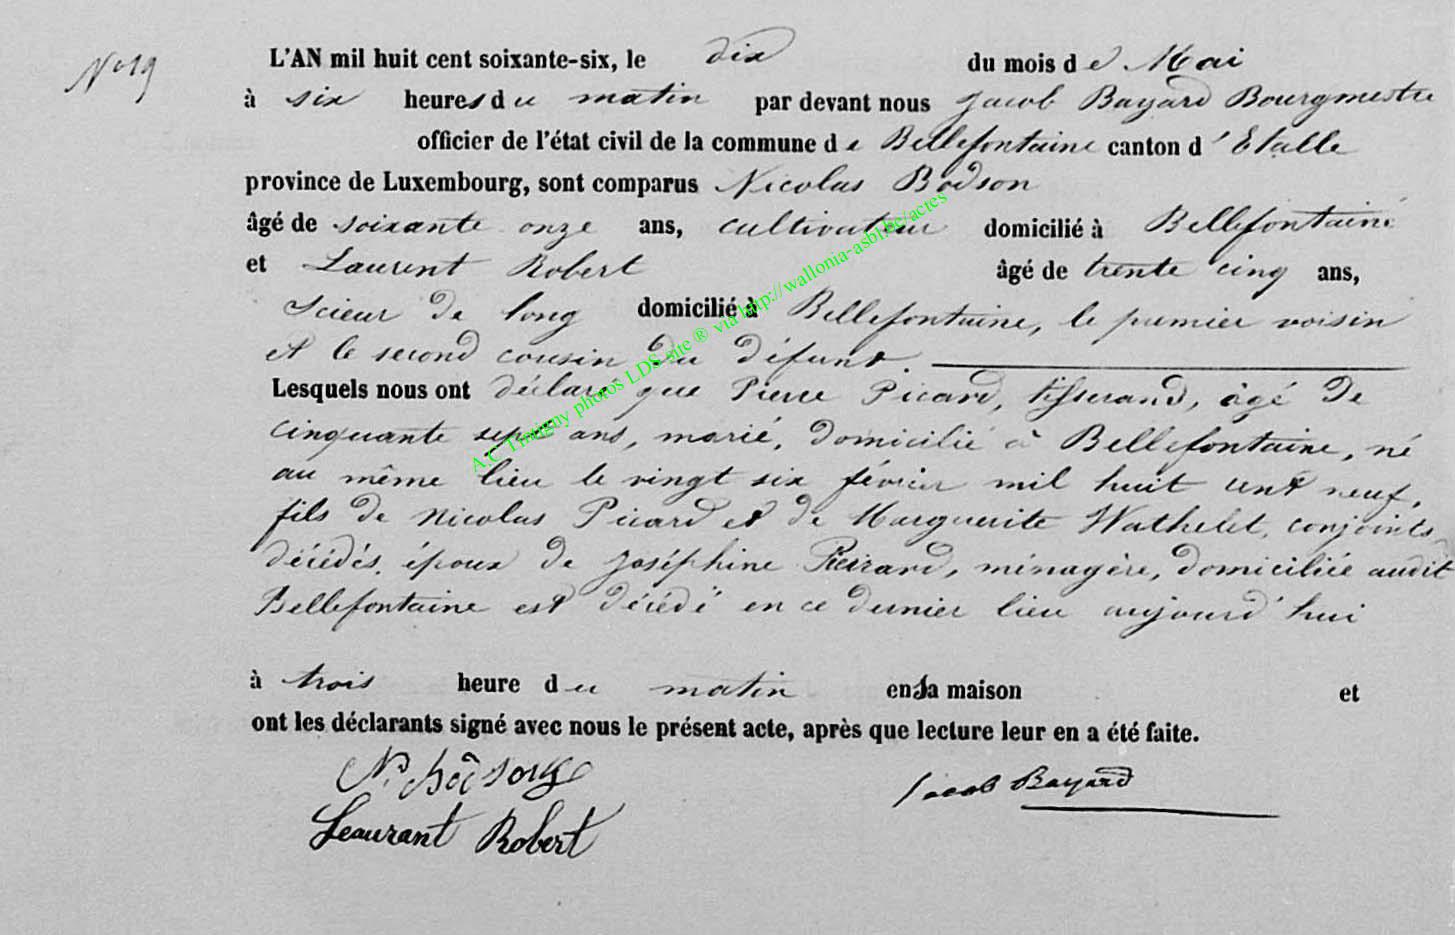 N° 19
L'AN mil huit cent soixante-six, le dix du mois de Mai
à six heures du matin par devant nous Jacob Bayard Bourgmestre
officier de l'état civil de la commune de Bellefontaine canton d'Etalle
province de Luxembourg, sont comparus Nicolas Bodson
âgé de soixante onze ans, cultivateur domicilié à Bellefontaine
et Laurent Robert âgé de trente cinq ans,
Scieur de long domicilié à Bellefontaine, le premier voisin
et le second cousin du défunt.
Lesquels nous ont déclaré que Pierre Picard, tisserand, âgé de
cinquante sept ans, marié, domicilié à Bellefontaine, né
au même lieu le vingt six février mil huit cent neuf,
fils de Nicolas Picard et de Marguerite Wathelet, conjoints
décédés, époux de Joséphine Pierrard, ménagère, domiciliée audit
Bellefontaine est décédé en ce dernier lieu aujourd'hui
à trois heure du matin en sa maison et
ont les déclarants signé avec nous le présent acte, après que lecture leur en a été faite.
N. Bodson Jacob Bayard
Leaurant Robert
A.C Tintigny photos LDS site ® via http://wallonia-asbl.be/actes